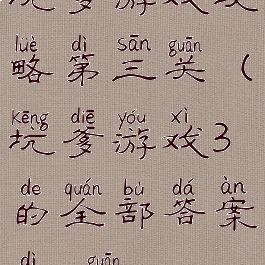 坑爹游戏攻
lüè dì sān guān
略第三关（
kēng diē yóu xì
坑爹游戏3
de quán bù dá àn
的全部答案
dì guān